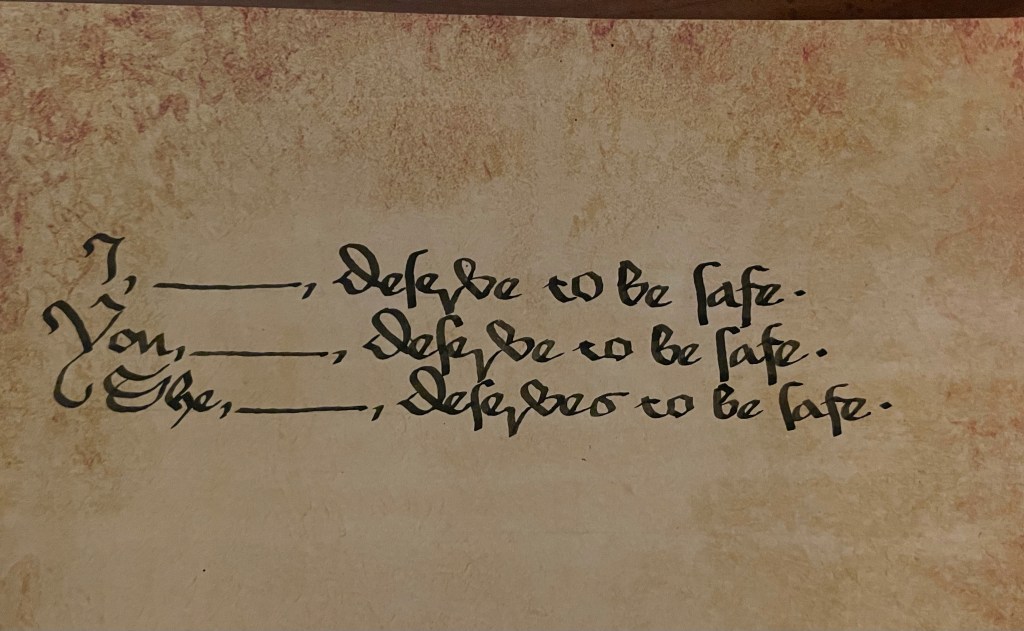 I, ________, deserve to be safe.
You, ________, deserve to be safe.
She, ________, deserves to be safe.